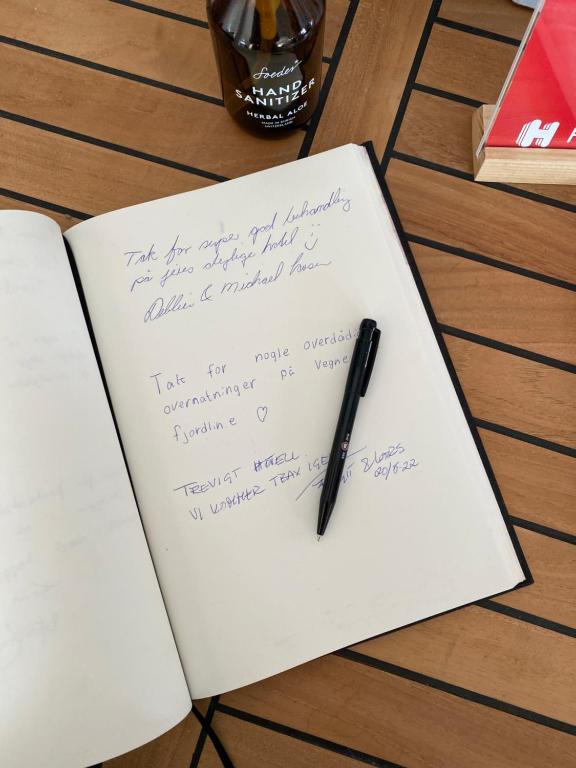 Soeder
HAND
SANITIZER
HERBAL ALOE
MADE IN
SWITZERLAND
H
Tak for super god behandling
på jeres dejlige hotel
Debbie & Michael
Tak for nogle overdådi
overnatninger på vegne
fjordline ♡
TREVIGT HOTELL
VI KOMMER TBAX IGE
20/5-22